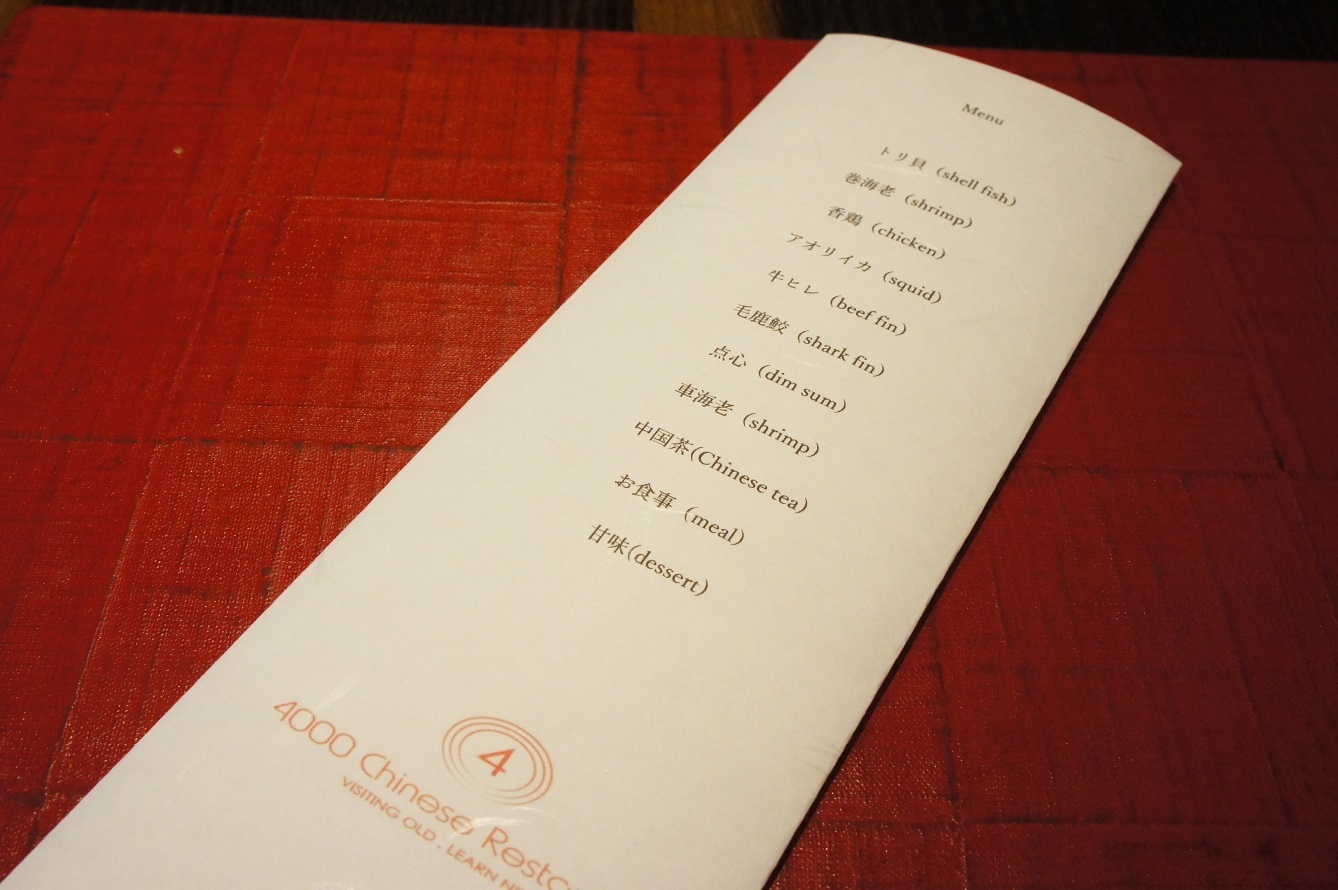 Menu
トリ貝 (shell fish)
巻海老 (shrimp)
香鶏 (chicken)
アオリイカ (squid)
牛ヒレ (beef fin)
毛鹿鮫 (shark fin)
点心 (dim sum)
車海老 (shrimp)
中国茶(Chinese tea)
お食事 (meal)
甘味(dessert)
4
4000 Chinese
VISITING OLD . LEARN